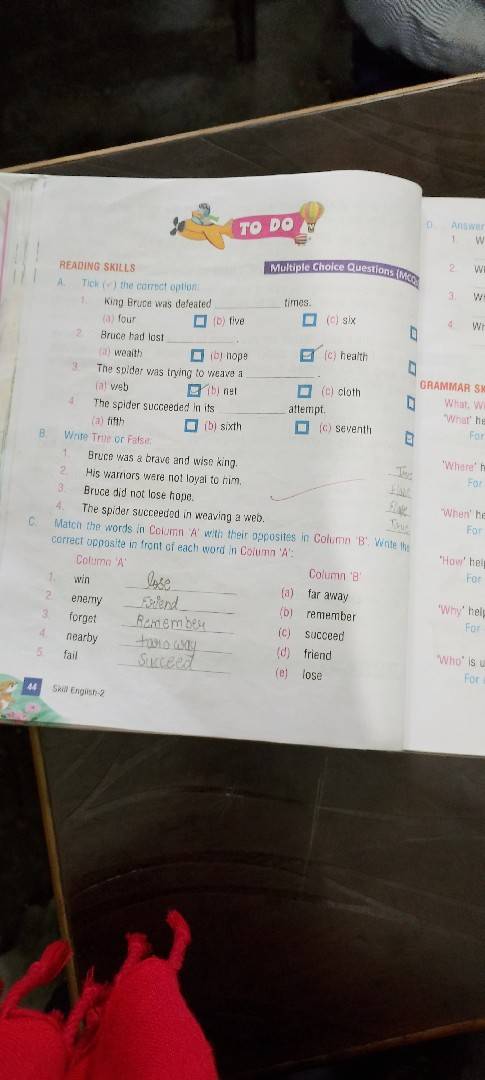 TO DO
READING SKILLS
Multiple Choice Questions (MCQs
A. Tick (✓) the correct option:
1. King Bruce was defeated ________ times.
(a) four (b) five (c) six
2. Bruce had lost ________.
(a) wealth (b) hope (c) health
3. The spider was trying to weave a ________.
(a) web (b) net (c) cloth
4. The spider succeeded in its ________ attempt.
(a) fifth (b) sixth (c) seventh
B. Write True or False:
1. Bruce was a brave and wise king. True
2. His warriors were not loyal to him.
3. Bruce did not lose hope.
4. The spider succeeded in weaving a web. True
C. Match the words in Column 'A' with their opposites in Column 'B'. Write the
correct opposite in front of each word in Column 'A':
Column 'A' Column 'B'
1. win lose (a) far away
2. enemy Friend (b) remember
3. forget Remember (c) succeed
4. nearby (d) friend
5. fail Succeed (e) lose
44 Skill English-2
D. Answer
1. W
2. W
3. W
4. Wr
GRAMMAR SK
What, W
'What' he
For
'Where' h
For
'When' he
For
'How' hel
For
'Why' help
For
'Who' is u
For